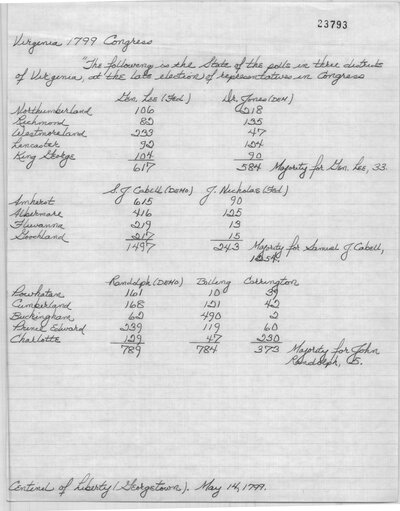 23793
Virginia 1799 Congress
"The following is the State of the polls in three districts
of Virginia, at the late election of representatives in Congress
Gen. Lee (Fed) Dr. Jones (Dem)
Northumberland 106
Richmond 82 135
Westmoreland 233 47
Lancaster 92 124
King George 104 90
617 584 Majority for Gen. Lee, 33.
S.J. Cabell (Demo) J. Nicholas (Fed)
Amherst 615 90
Albermare 416 125
Fluvanna 219 13
Goochland 217 15
1497 243 Majority for Samuel J Cabell,
1254.
Randolph (Demo) Bolling Carrington
Powhatan 161 10 39
Cumberland 168 121 42
Buckingham 62 490 2
Prince Edward 239 119 60
Charlotte 129 47 230
789 784 373 Majority for John
Randolph, 5.
Centinel of Liberty (Georgetown). May 14, 1799.